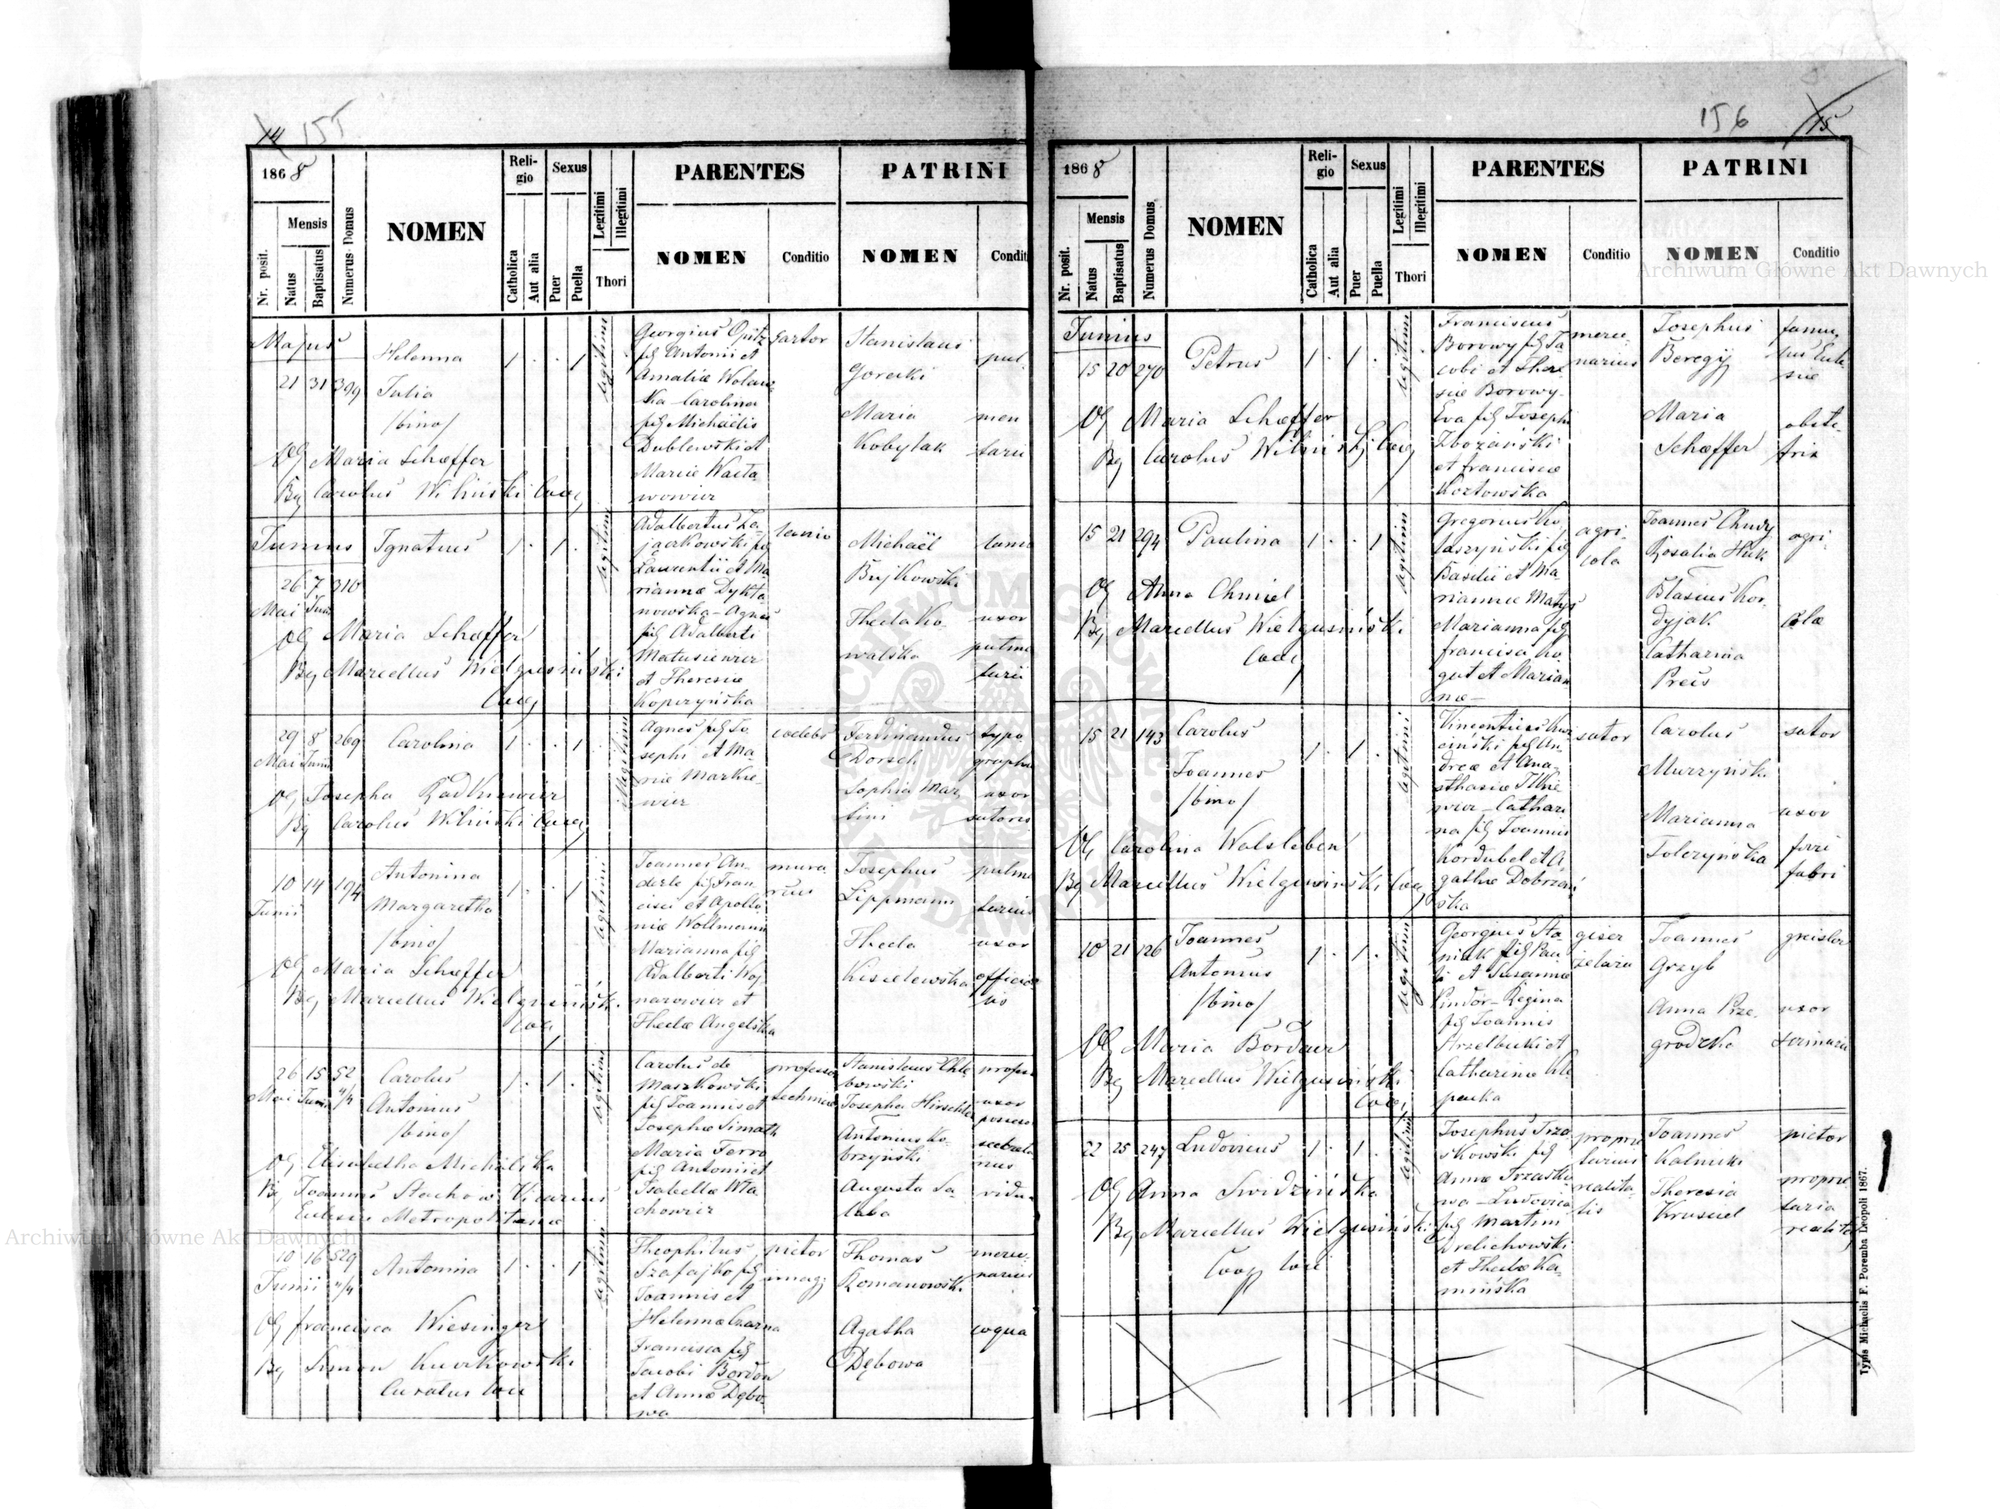 14 155
1868
Nr. posit.
Mensis
Natus
Baptisatus
Numerus Domus
NOMEN
Religio
Catholica
Aut alia
Sexus
Puer
Puella
Legitimi
Illegitimi
Thori
PARENTES
NOMEN
Conditio
PATRINI
NOMEN
Condit
Majus
21 31 399
Helenna
Julia
/bino/
1 . . 1
legitimi
Georgius Opitz
fil Antonii et
Amaliæ Wolans
ka Carolina
fil Michaëlis
Dublewski et
Mariæ Wacła
wowicz
sartor
Stanislaus
Gorecki
Maria
Kobylak
pal
men
tarii
Obs Maria Schæffer
Bap Carolus Wiliński Coop
Junius
26 7 310
Mai Junii
Ignatius
1 . 1 .
legitimi
Adalbertus Za
jączkowski fil
Laurentii et Ma
riannæ Dykta
nowska - Agnes
fil Adalberti
Matusiewicz
et Theresiæ
Koperzyńska
lanio
Michaël
Bujkowski
Thecla Ko
walska
lanio
uxor
Obs Maria Schæffer
Bap Marcellus Wielgusiński
Coop
29 8 269
Mai Junii
Carolina
1 . . 1
illegitimi
Agnes fil Jo
sephi et Ma
riæ Markie
wicz
coelebs
Ferdinandus
Dorsch
Sophia Mar
tini
typo
graphus
uxor
sutoris
Obs Josepha Radkiewicz
Bap Carolus Wiliński Coop
10 14 194
Junii
Antonina
Margaretha
/bino/
1 . . 1
legitimi
Joannes An
derle fil Fran
cisci et Apollo
niæ Wollmann
Marianna fil
Adalberti Woj
narowicz et
Theclæ Angelska
mura
rius
Josephus
Lippmann
Thecla
Kisielewska
uxor
officia
lis
Obs Maria Schæffer
Bap Marcellus Wielgusiński
Coop
26 15 52
Mai Junii 4/4
Carolus
Antonius
/bino/
1 . 1 .
legitimi
Carolus de
Maszkowski
fil Joannis et
Josephæ Simath
Maria Ferro
fil Antonii et
Isabellæ Wła
chowicz
professor
technicæ
Stanislaus Chłe
bowski
Josepha Hirschler
Antonius Ko
brzyński
Augusta Sa
laba
profes
uxor
vidua
Obs Elisabetha Michalska
Bap Joannes Stachów Vicarius
Eclesiæ Metropolitanæ
10 16 529
Junii 4/4
Antonina
1 . . 1
legitimi
Theophilus
Szafajko fil
Joannis et
Helennæ Czarna
Francisca fil
Jacobi Bordon
et Annæ Dębo
wa
pictor
imag
Thomas
Romanowski
Agatha
Dębowa
merce
narius
coqua
Obs Francisca Wiesinger
Bap Simon Kuczkowski
Curatus loci
156 15
1868
Nr. posit.
Mensis
Natus
Baptisatus
Numerus Domus
NOMEN
Religio
Catholica
Aut alia
Sexus
Puer
Puella
Legitimi
Illegitimi
Thori
PARENTES
NOMEN
Conditio
PATRINI
NOMEN
Conditio
Junius
15 20 270
Petrus
1 . 1 .
legitimi
Franciscus
Borowy fil Ja
cobi et There
siæ Borowy
Eva fil Josephi
Zborański
et Franciscæ
Kozłowska
merce
narius
Josephus
Beregij
Maria
Schæffer
famu
lus Ecle
siæ
obste
trix
Obs Maria Schæffer
Bap Carolus Wiliński Coop
15 21 294
Paulina
1 . . 1
legitimi
Gregorius Ho
Basilii et Ma
riannæ Matys
Marianna fil
Francisci Ko
gut et Marian
næ
agri
cola
Joannes Chudy
Rosalia Huk
Blasius Kor
dyjak
Catharina
Preis
agri
colæ
Obs Anna Chmiel
Bap Marcellus Wielgusiński
Coop
15 21 143
Carolus
Joannes
/bino/
1 . 1 .
legitimi
Vincentius Kur
ciński fil An
dreæ et Ana
sthasiæ Ilkie
wicz - Cathari
na fil Joannis
Kordubel et A
gathæ Dobrzań
ska
sutor
Carolus
Murzyński
Marianna
Tolczyńska
sutor
uxor
ferri
fabri
Obs Carolina Walsleben
Bap Marcellus Wielgusiński Coop
10 21 126
Joannes
Antonius
/bino/
1 . 1 .
legitimi
Georgius Sta
niak fil Pau
li et Susannæ
Pindor - Regina
fil Joannis
Strzelbicki et
Catharinæ Chle
Joannes
Grzyb
Anna Prze
grodzka
greisler
uxor
Obs Maria Bordaur
Bap Marcellus Wielgusiński
Coop
22 25 247
Ludovicus
1 . 1 .
legitimi
Josephus Trza
skowski fil
Annæ Trzasko
wa - Ludovica
fil Martini
Drelichowski
et Theclæ Ka
mińska
proprie
tarius
realita
tis
Joannes
Kalnicki
Theresia
Krusiel
pictor
proprie
taria
realitat
Obs Anna Swidzińska
Bap Marcellus Wielgusiński
Coop loci
Typis Michaelis F. Poremba Leopoli 1867.
Archiwum Główne Akt Dawnych
Archiwum Główne Akt Dawnych
ARCHIWUM GŁÓWNE AKT DAWNYCH